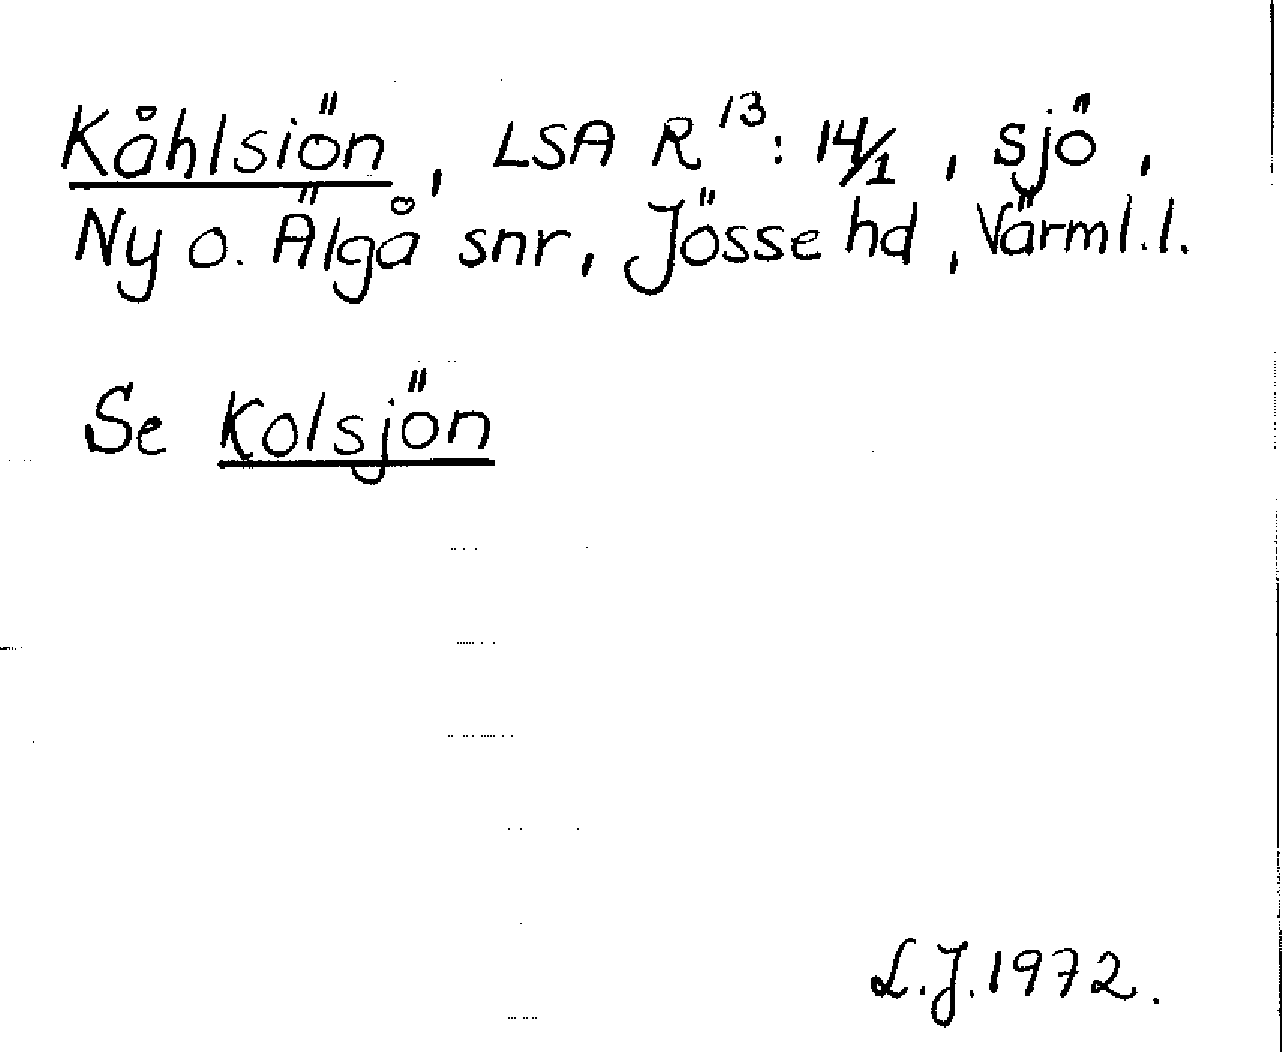 Kåhlsiön, LSA R 13: 14/1, sjö,
Ny o. Älgå snr, Jösse hd, Värml.l.
Se Kolsjön
L.J. 1972.